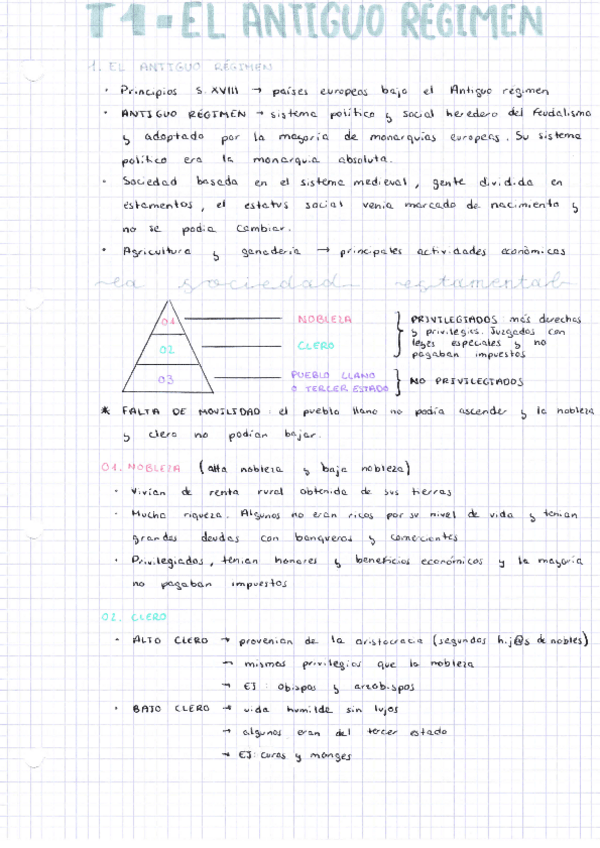 T1-EL ANTIGUO RÉGIMEN
1. EL ANTIGUO RÉGIMEN
· Principios S. XVIII → países europeos bajo el Antiguo régimen
· ANTIGUO RÉGIMEN → sistema político y social heredero del feudalismo
y adoptado por la mayoría de monarquías europeas. Su sistema
político era la monarquía absoluta.
· Sociedad basada en el sistema medieval, gente dividida en
estamentos, el estatus social venía marcado de nacimiento y
no se podía cambiar.
· Agricultura y ganadería → principales actividades económicas
La sociedad estamental
01 NOBLEZA
02 CLERO
03 PUEBLO LLANO
O TERCER ESTADO
PRIVILEGIADOS más derechos
y privilegios. Juzgados con
leyes especiales y no
pagaban impuestos
NO PRIVILEGIADOS
* FALTA DE MOVILIDAD: el pueblo llano no podía ascender y la nobleza
y clero no podían bajar.
01. NOBLEZA (alta nobleza y baja nobleza)
· Vivían de renta rural obtenida de sus tierras
· Mucha riqueza. Algunos no eran ricos por su nivel de vida y tenían
grandes deudas con banqueros y comerciantes
· Privilegiados, tenían honores y beneficios económicos y la mayoría
no pagaban impuestos
02. CLERO
· ALTO CLERO → provenían de la aristocracia (segundos hij@s de nobles)
→ mismos privilegios que la nobleza
→ EJ: obispos y arzobispos
· BAJO CLERO → vida humilde sin lujos
→ algunos eran del tercer estado
→ EJ: curas y monges